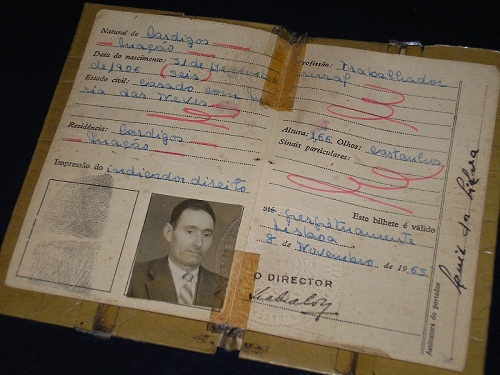 Natural de Cardigos
Mação
Data do nascimento: 31 de
de 1906 (seis)
Estado civil: casado com Ma
ria das Neves
Residência: Cardigos
Mação
Impressão do indicador direito
Profissão: trabalhador
rural
Altura: 1,66 Olhos: castanhos
Sinais particulares:
Este bilhete é válido
até perpètuamente
Lisboa
8 de Novembro de 1963
O DIRECTOR
Assinatura do portador
da Silva